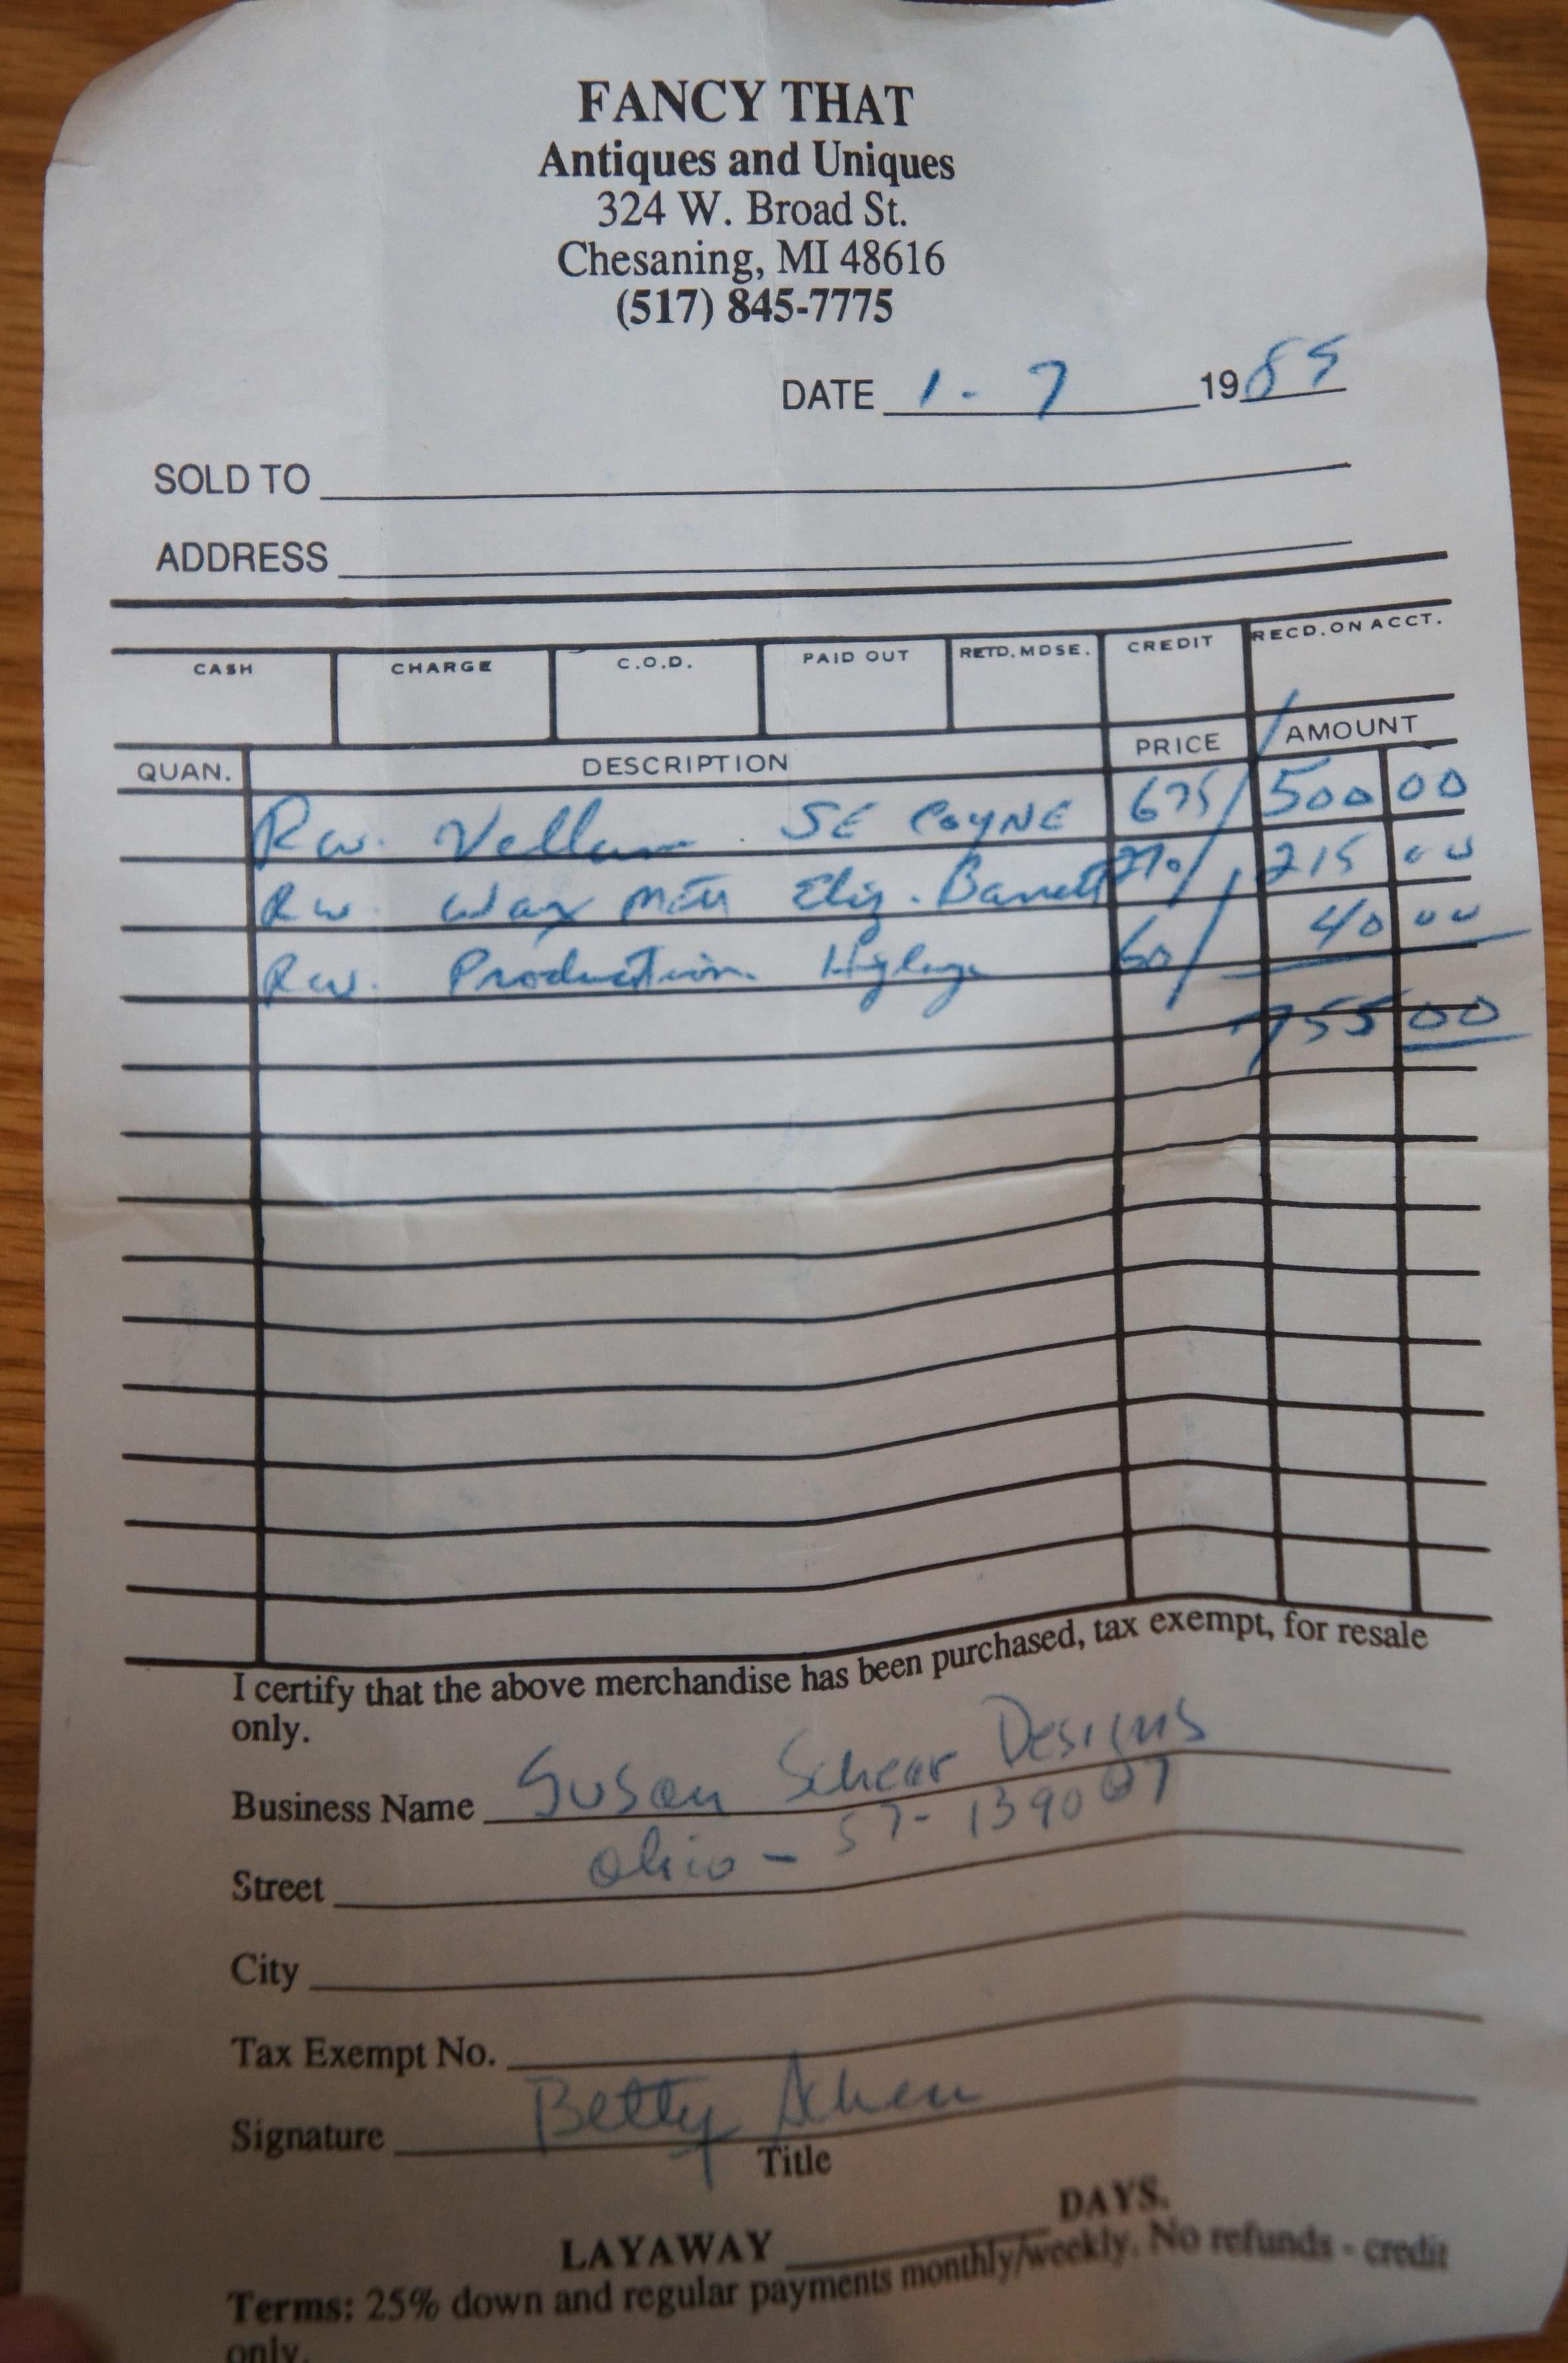 FANCY THAT
Antiques and Uniques
324 W. Broad St.
Chesaning, MI 48616
(517) 845-7775
DATE 1-7 1989
SOLD TO
ADDRESS
CASH CHARGE C.O.D. PAID OUT RETD. MDSE. CREDIT RECD. ON ACCT.
QUAN. DESCRIPTION PRICE AMOUNT
Rw. Vellum SE COYNE 675/ 500 00
Rw. Wax Eliz. Barrett 270/ 215 00
Rw. Production 60/ 40 00
755 00
I certify that the above merchandise has been purchased, tax exempt, for resale
only.
Business Name Susan Schear Designs
Street Ohio - 57-139007
City
Tax Exempt No.
Signature Betty
Title
LAYAWAY DAYS.
Terms: 25% down and regular payments monthly/weekly. No refunds - credit
only.